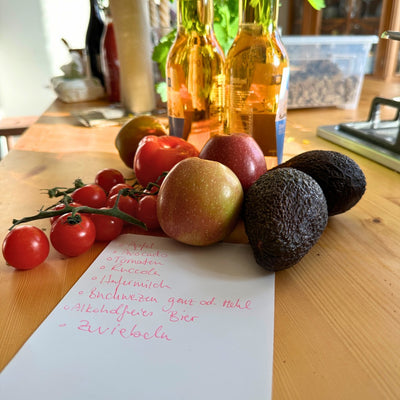 Äpfel
• Avocado
• Tomaten
• Ruccola
• Hafermilch
• Buchweizen ganz od. Mehl
• Alkoholfreies Bier
• Zwiebeln